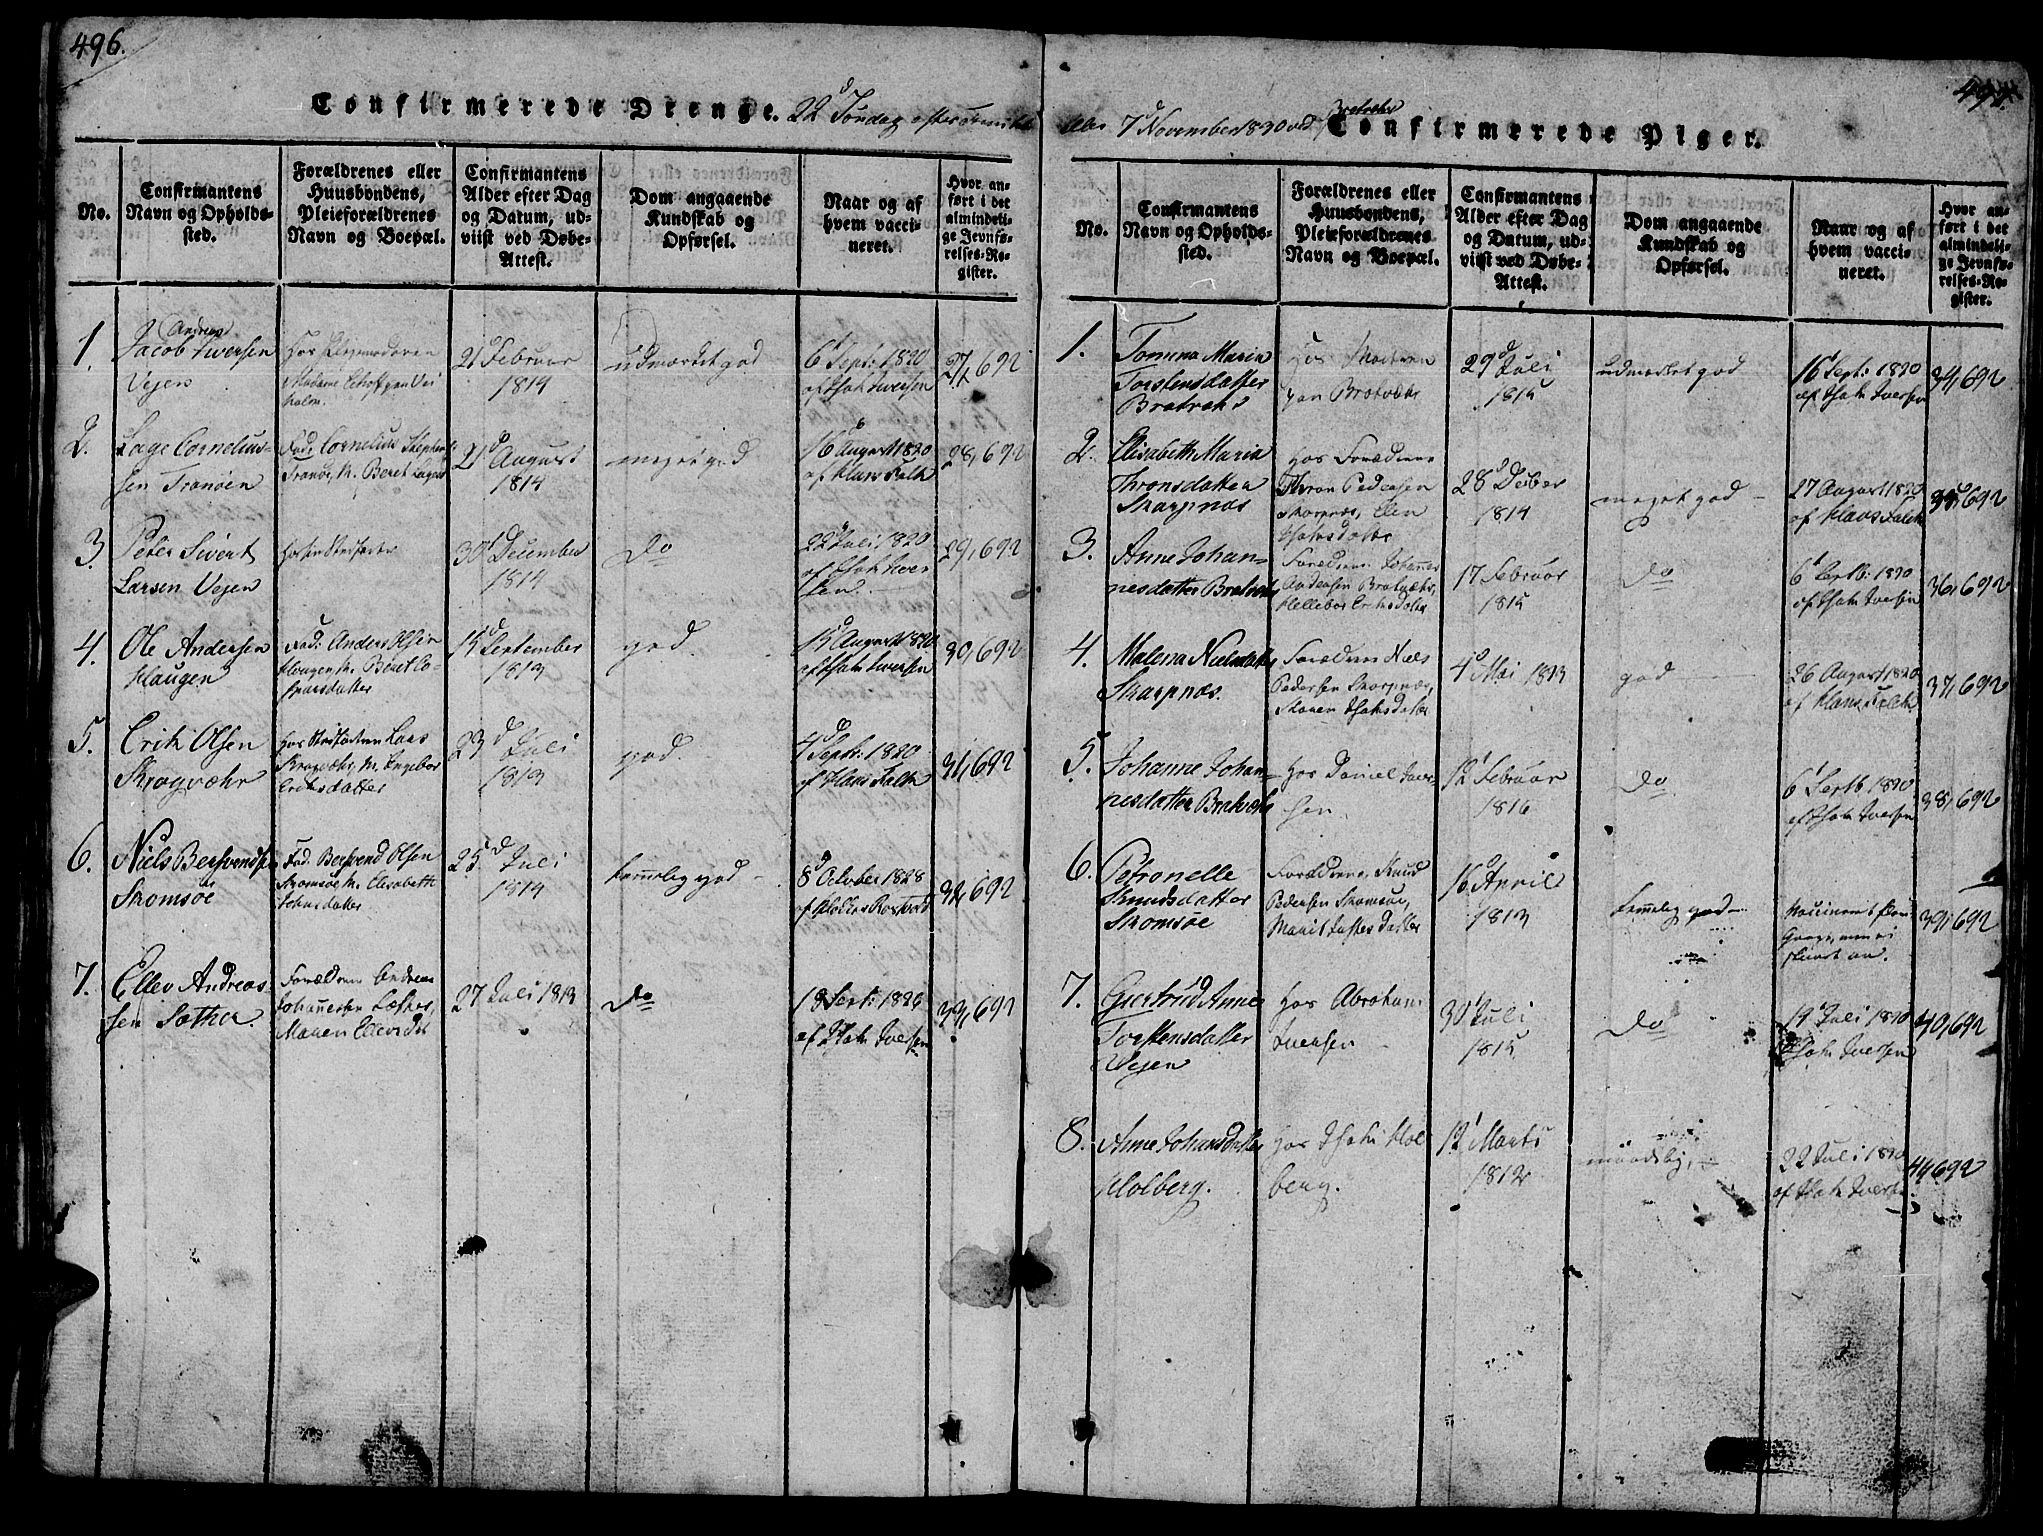 496.
Confirmerede Drenge. 22d Søndag efter
No.
Confirmantens
Navn og Opholds-
sted.
Forældrenes eller
Huusbondens,
Pleieforældrenes
Navn og Boepæl.
Confirmantens
Alder efter Dag
og Datum, ud-
viist ved Døbe-
Attest.
Dom angaaende
Kundskab og
Opførsel.
Naar og af
hvem vacci-
neret.
Hvor an-
ført i det
almindeli-
ge Jevnfø-
relses-Re-
gister.
1.
Andreas
Jacob Iversen
Vejen
Hos
Madame
holm.
21 Februar
1814
udmærket god
6 Sept: 1820
af Isak Iversen
27,692
2.
Lage Cornelius-
sen Tranøen
Fad: Cornelius
Tranøe, M. Beret
21d August
1814
meget god
16d August 1820
af Klaus Falk
28,692
3.
Peter Sivert
Larsen Vejen
30d December
1814
Do
22d Juli 1820
af Isak Iver
sen
29,692
4.
Ole Andersen
Haugen
Fad: Anders Olsen
Haugen M. Beret
datter
15d September
1813
god.
15d August 1820
af Isak Iversen
30,692
5.
Erik Olsen
Skrogvæhr
Hos Lars
Skrogvæhr, M. Ingebor
Eriksdatter
23d Juli
1813
god.
4d Sept: 1820
af Klaus Falk
31,692
6.
Niels Bersvendsen
Skomsøe
Fad. Bersvend Olsen
Skomsøe M. Elisabeth
Johnsdatter
25d Juli
1814
temmelig god
8 October 1828
32,692
7.
Ellev Andreas-
sen Sother.
Forældrene Andreas
Johannessen
Maren Ellevsdt
27 Juli 1813
Do
18 Sept: 1826
af Isak Iversen
33,692
497
7d November 1830 ved Bratvær
Confirmerede Piger.
No.
Confirmantens
Navn og Opholds-
sted.
Forældrenes eller
Huusbondens,
Pleieforældrenes
Navn og Boepæl.
Confirmantens
Alder efter Dag
og Datum, ud-
viist ved Døbe-
Attest.
Dom angaaende
Kundskab og
Opførsel.
Naar og af
hvem vacci-
neret.
Hvor an-
ført i det
almindeli-
ge Jevnfø-
relses-Re-
gister.
1.
Tomina Maria
Torstensdatter
Bratvæhr
Hos Moderen
Bratvæhr
29d Juli
1815
udmærket god
16 Sept: 1820
af Isak Iversen
34,692
2.
Elisabeth Maria
Thronsdatter
Skarpnæs
Hos Forældrene
Thron Pedersen
Skarpnæs, Elen
Isaksdatter
28d Decber
1814
meget god
27 August 1820
af Klaus Falck
35,692
3.
Anne Johan-
nesdatter Bratvæhr
Forældrene Johannes
Andersen Bratvæhr,
Hellebor Eriksdatter
17 Februar
1815
Do
6 Septb: 1820
af Isak Iversen
36,692
4.
Malena Nielsdatter
Skarpnæs.
Forældrene Niels
Pedersen Skarpnæs,
Maren Isaksdatter
4d Mai 1813
god
26 August 1820
af Klaus Falck
37,692
5.
Johanne Johan-
nesdatter Bratvæhr
Hos Daniel Iver-
sen.
12 Februar
1816
Do
6 Septb 1820
af Isak Iversen
38,692
6.
Petronelle
Knudsdatter
Skomsøe
Forældrene, Knud
Pedersen Skomsøe,
Marit Justesdatter
16d April
1813
temmelig god
39,692
7.
Giertrud Anne
Torstensdatter
Vejen
Hos Abraham
Iversen
30 Juli
1815
Do
19 Juli 1820
Isak Iversen
40,692
8.
Anne Johansdatter
Holberg.
Hos Isak Hol
berg.
12 Marts
1812
maadelig,
22 Juli 1820
af Isak Iversen
41,692